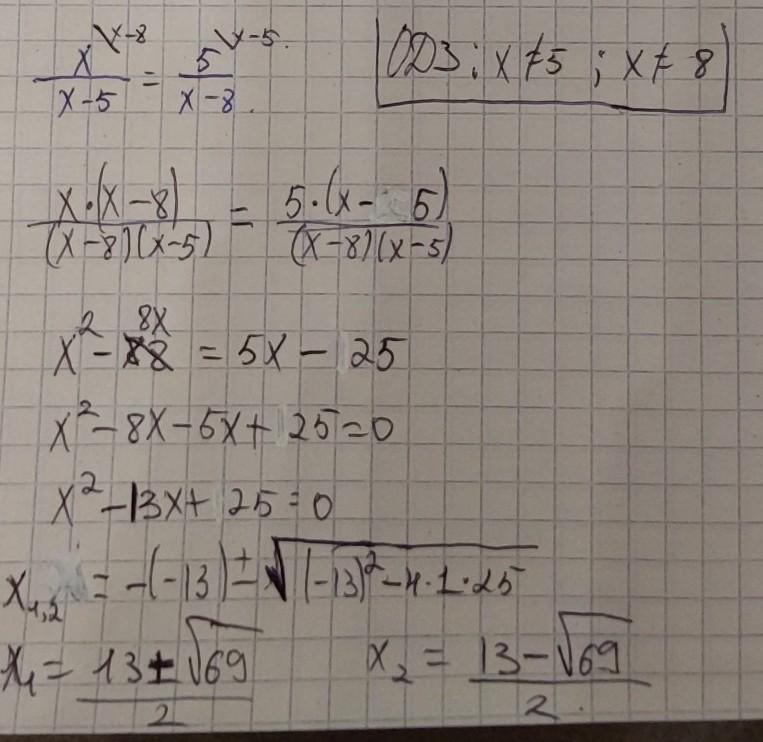 x \x-8 / x-5 = 5 \x-5 / x-8 ОДЗ: x ≠ 5 ; x ≠ 8
x·(x-8) / (x-8)(x-5) = 5·(x-5) / (x-8)(x-5)
x² - 8x = 5x - 25
x² - 8x - 5x + 25 = 0
x² - 13x + 25 = 0
x₁,₂ = -(-13) ± √(-13)² - 4·1·25
x₁ = 13 ± √69 / 2 x₂ = 13 - √69 / 2